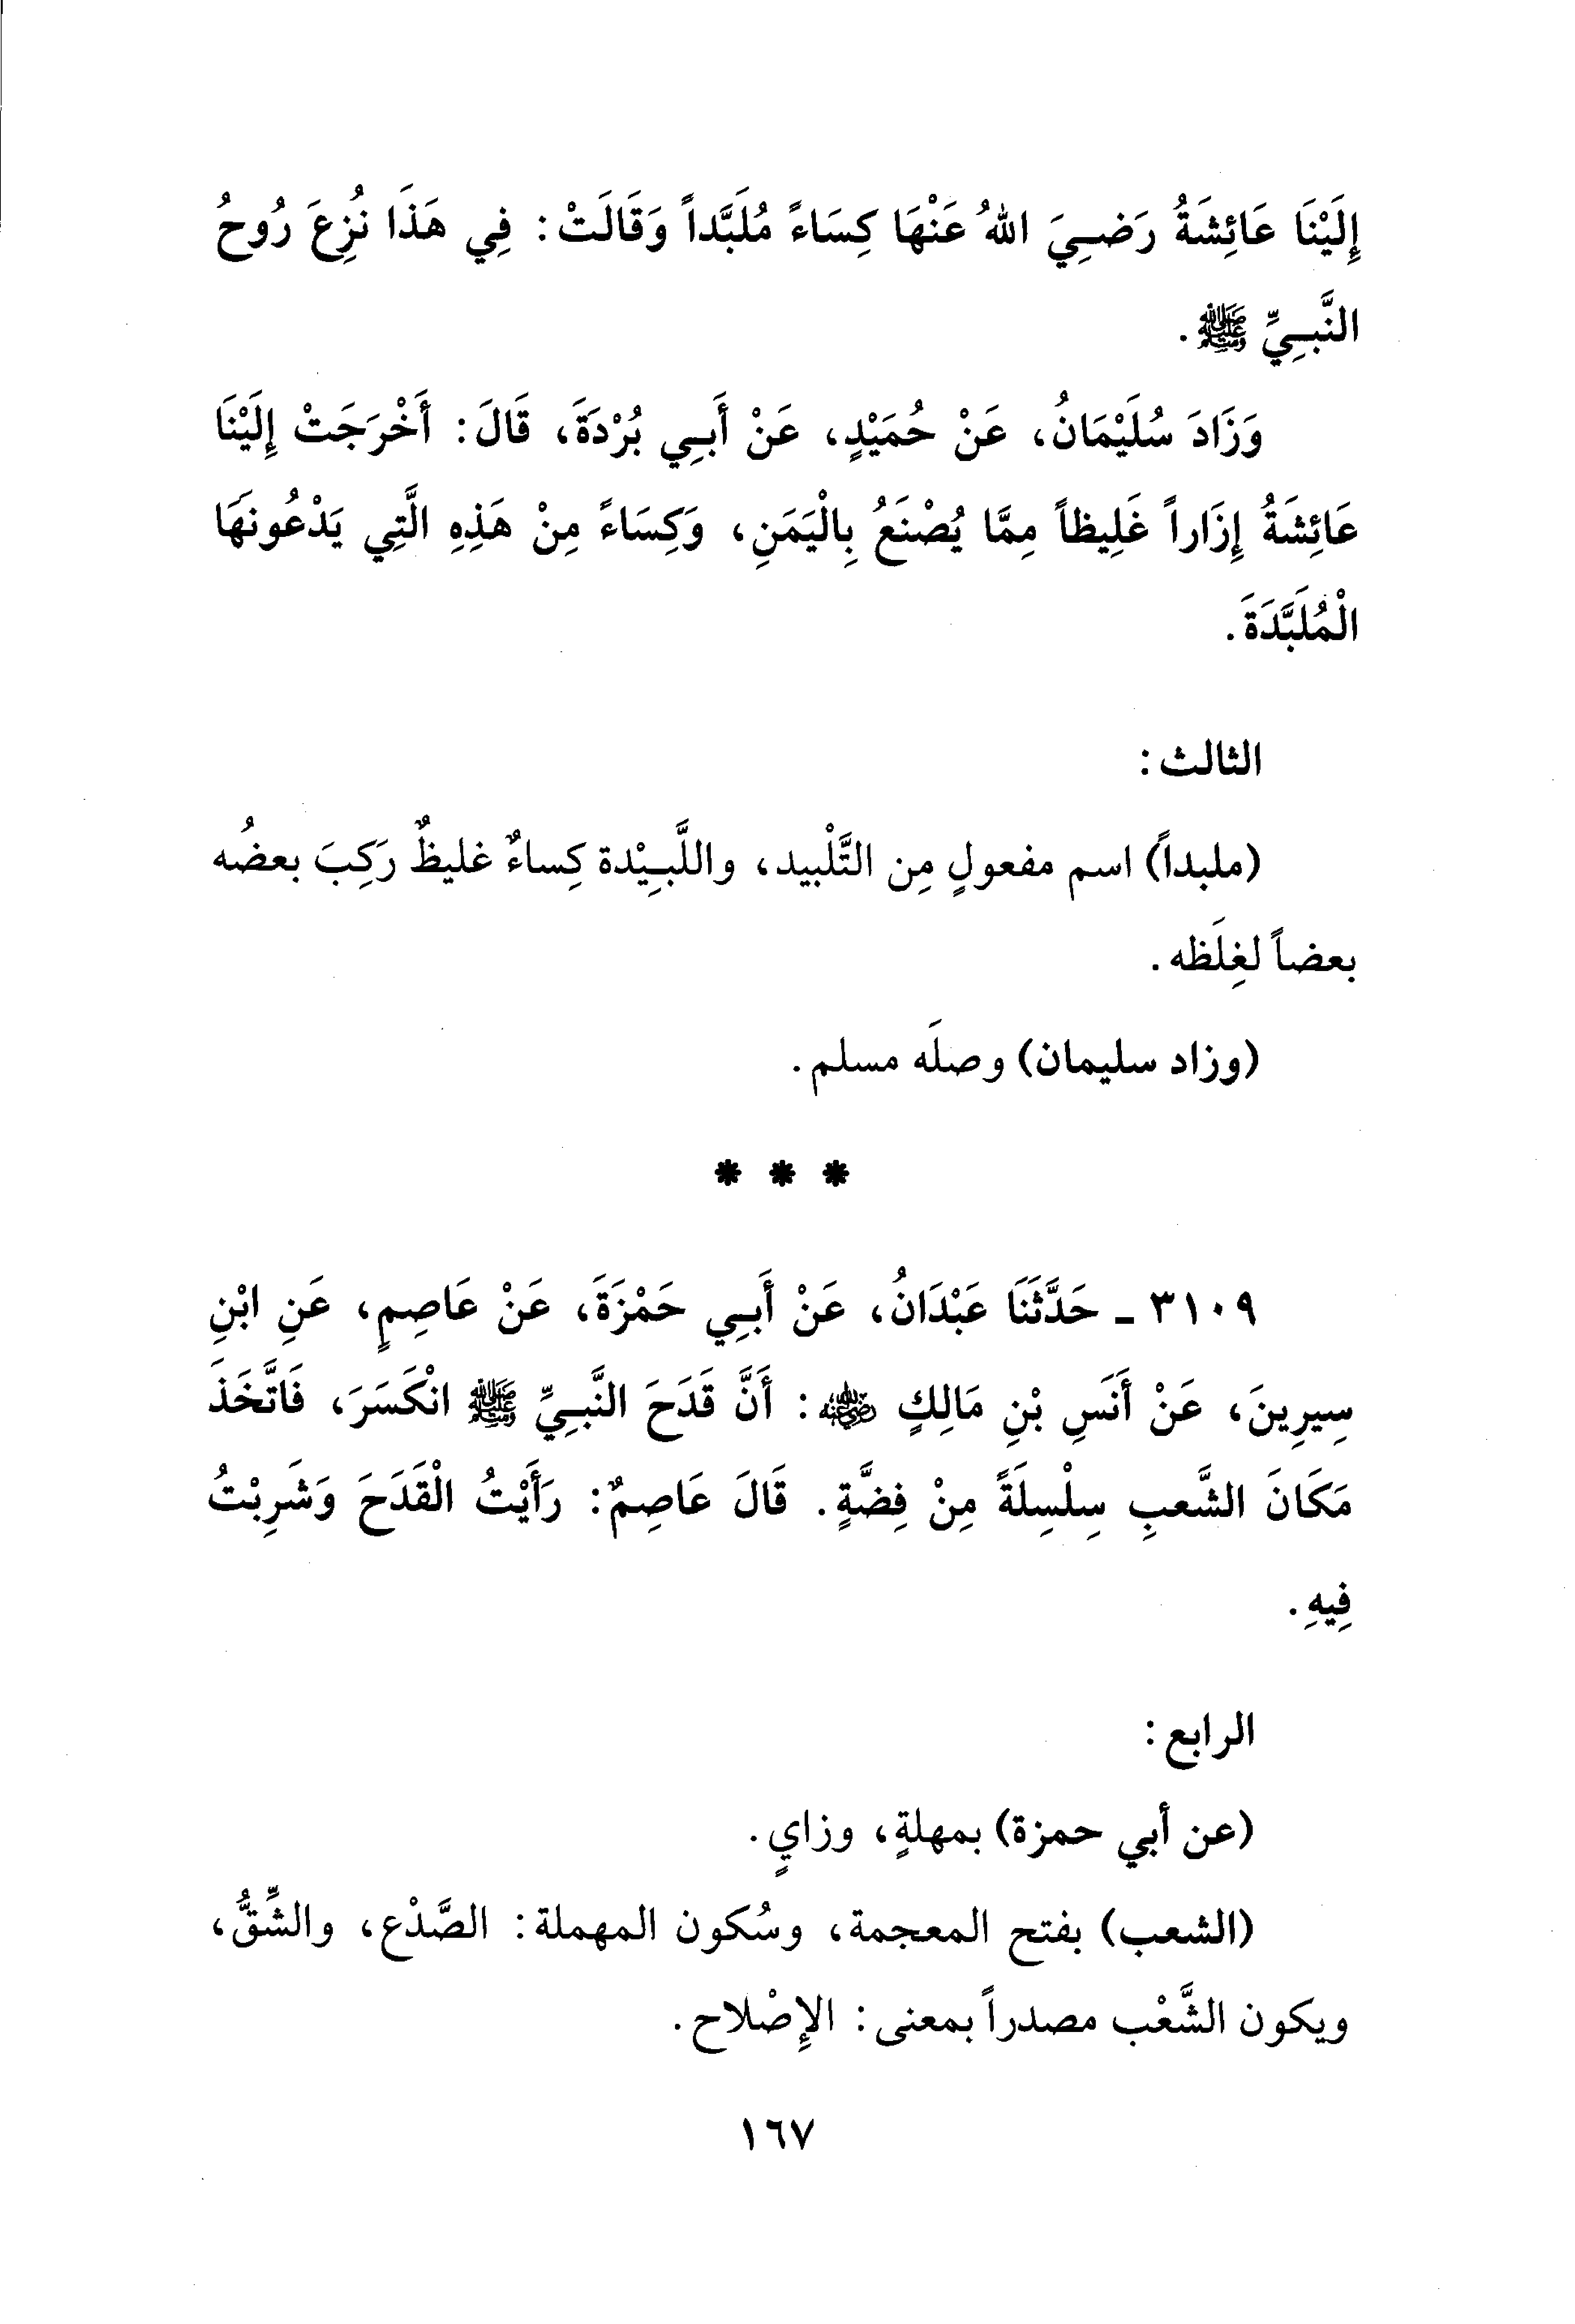 إِلَيْنَا عَائِشَةُ رَضِيَ اللهُ عَنْهَا كِسَاءً مُلَبَّداً وَقَالَتْ: فِي هَذَا نُزِعَ رُوحُ
النَّبِيِّ ﷺ.
وَزَادَ سُلَيْمَانُ، عَنْ حُمَيْدٍ، عَنْ أَبِي بُرْدَةَ، قَالَ: أَخْرَجَتْ إِلَيْنَا
عَائِشَةُ إِزَاراً غَلِيظاً مِمَّا يُصْنَعُ بِالْيَمَنِ، وَكِسَاءً مِنْ هَذِهِ الَّتِي يَدْعُونَهَا
الْمُلَبَّدَةَ.
الثالث:
(ملبداً) اسم مفعولٍ مِن التَّلْبيد، واللَّبِيْدة كِساءٌ غليظٌ رَكِبَ بعضُه
بعضاً لغِلَظه.
(وزاد سليمان) وصلَه مسلم.
* * *
٣١٠٩ - حَدَّثَنَا عَبْدَانُ، عَنْ أَبِي حَمْزَةَ، عَنْ عَاصِمٍ، عَنِ ابْنِ
سِيرِينَ، عَنْ أَنَسِ بْنِ مَالِكٍ رضي الله عنه: أَنَّ قَدَحَ النَّبِيِّ ﷺ انْكَسَرَ، فَاتَّخَذَ
مَكَانَ الشَّعبِ سِلْسِلَةً مِنْ فِضَّةٍ. قَالَ عَاصِمٌ: رَأَيْتُ الْقَدَحَ وَشَرِبْتُ
فِيهِ.
الرابع:
(عن أبي حمزة) بمهلةٍ، وزايٍ.
(الشعب) بفتح المعجمة، وسُكون المهملة: الصَّدْع، والشِّقُّ،
ويكون الشَّعْب مصدراً بمعنى: الإِصْلاح.
١٦٧